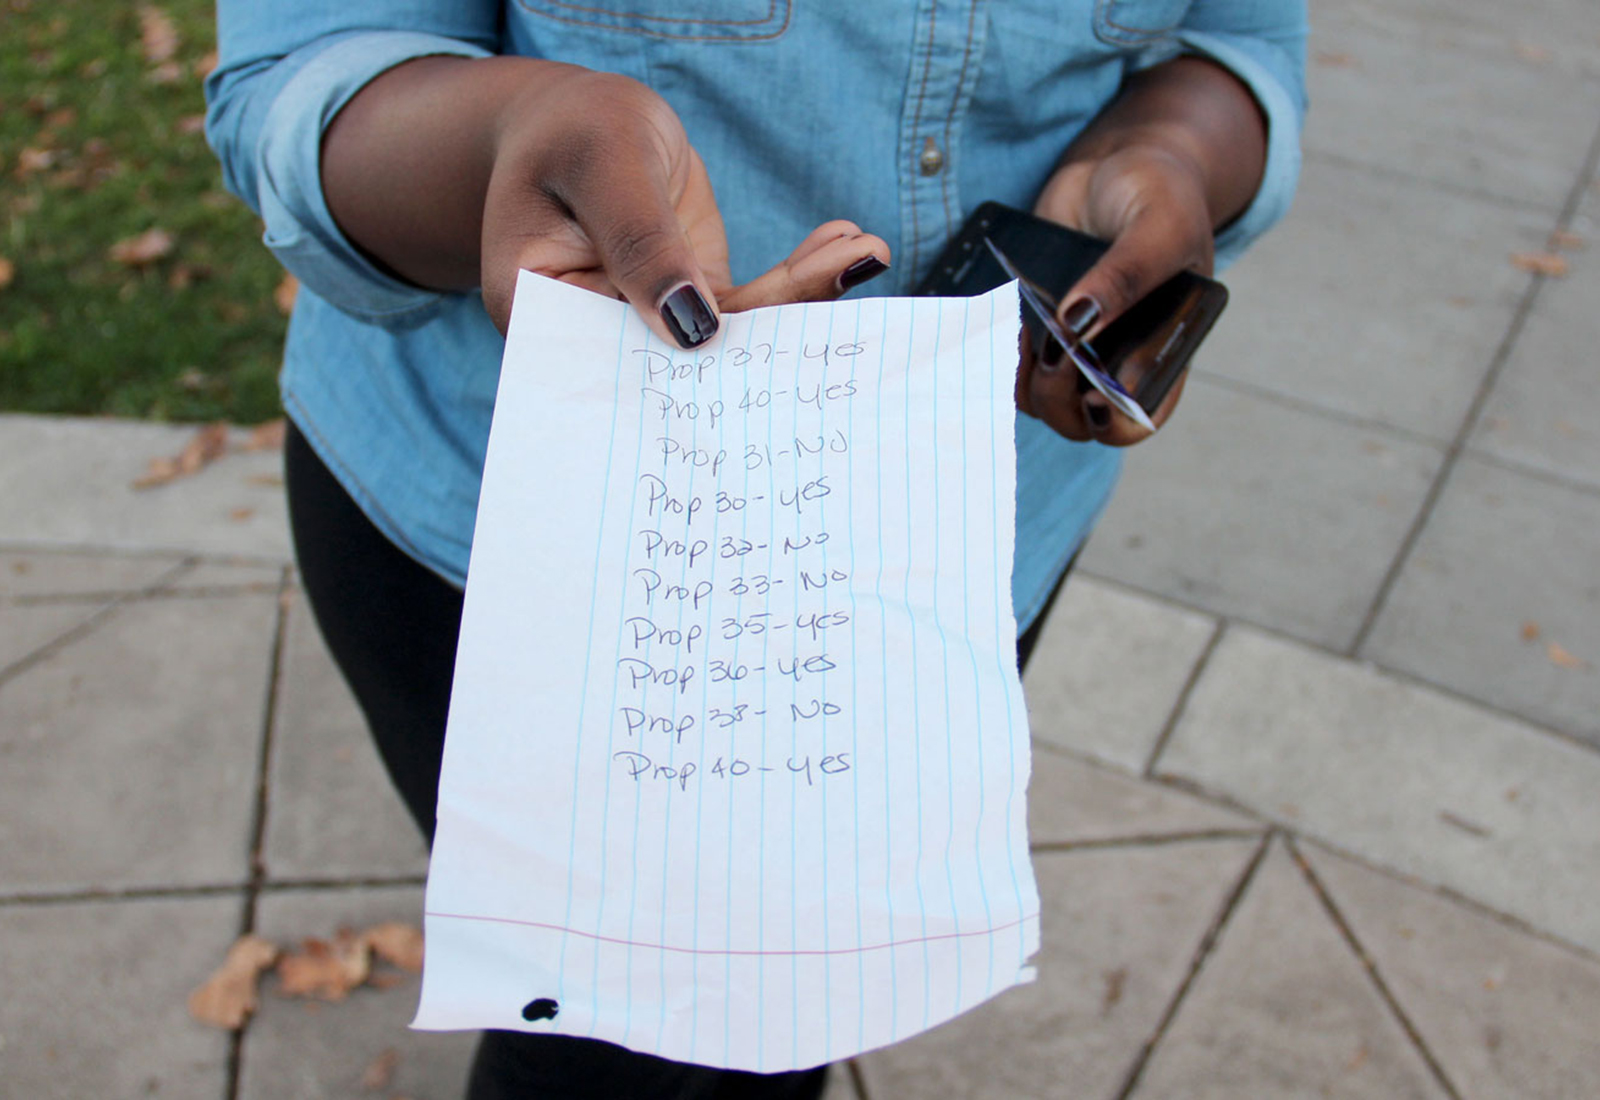 Prop 37-yes
Prop 40-yes
Prop 31-No
Prop 30-yes
Prop 32-No
Prop 33-No
Prop 35-yes
Prop 36-yes
Prop 38-No
Prop 40-yes